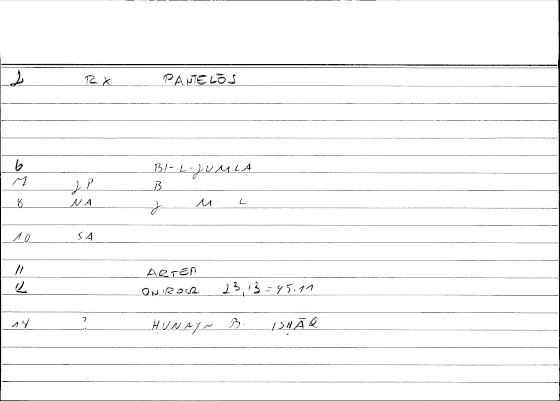 1 RX PANTELŌS
6 BI-L-JUMLA
7 JP B
8 NA J M L
10 SA
11 ARTEM
12 ONIROCR 23,13 = 45.11
14 ? HUNAYN B. ISHĀQ